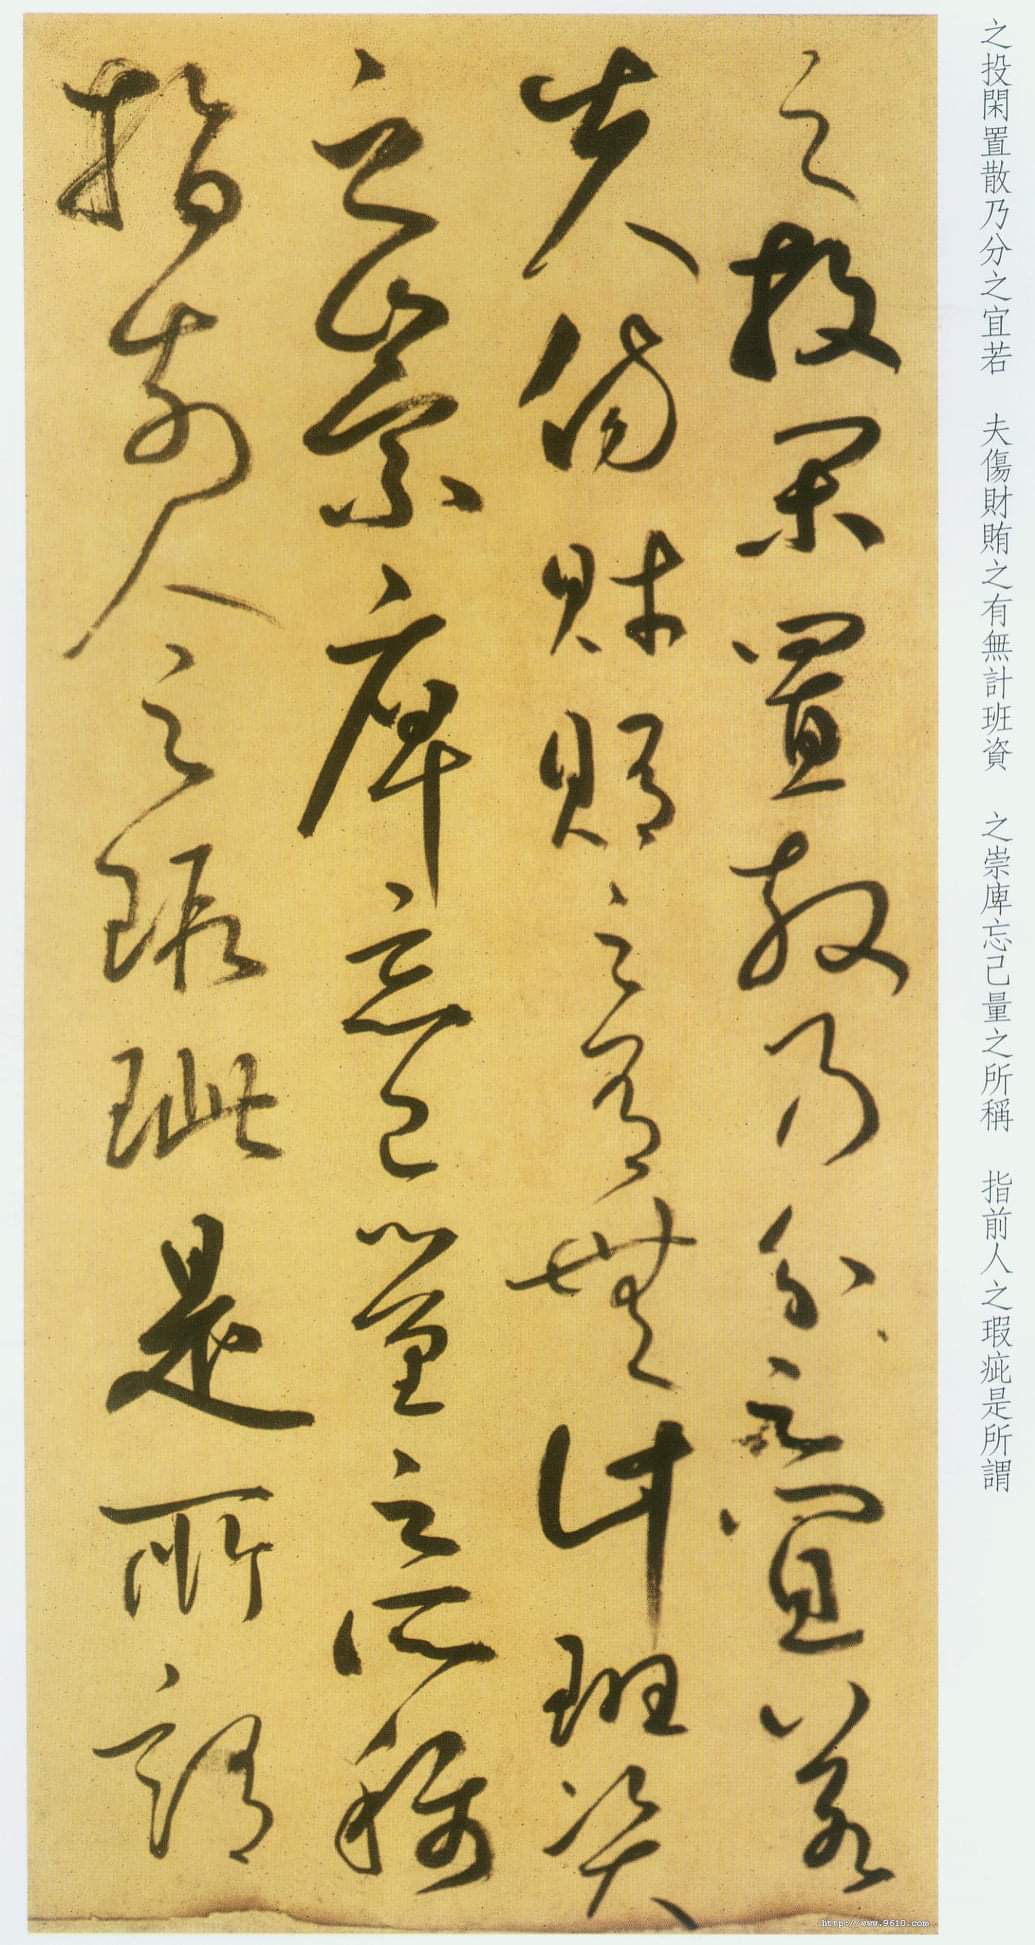 之投閑置散乃分之宜若　夫傷財賄之有無計班資　之崇庳忘己量之所稱　指前人之瑕疵是所謂
之投閑置散乃分之宜若
夫傷財賄之有無計班資
之崇庳忘己量之所稱
指前人之瑕疵是所謂
http://www.9610.com